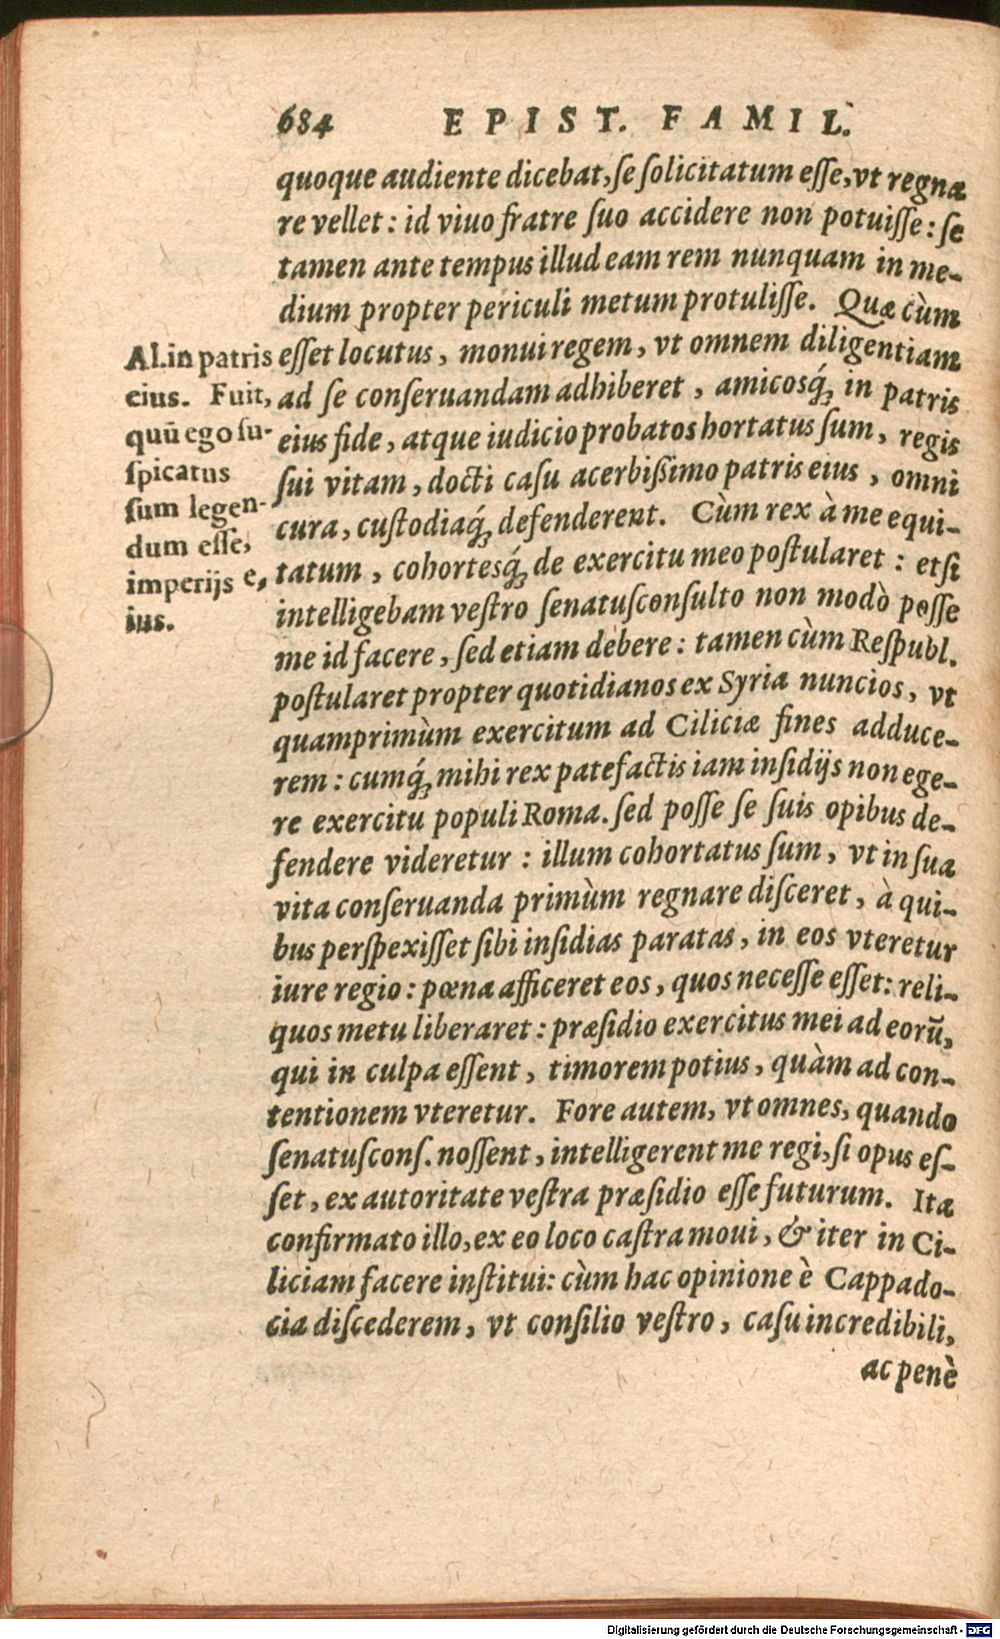 684 EPIST. FAMIL.
quoque audiente dicebat, se solicitatum esse, vt regna
re vellet: id viuo fratre suo accidere non potuisse: se
tamen ante tempus illud eam rem nunquam in me-
dium propter periculi metum protulisse. Quæ cùm
esset locutus, monui regem, vt omnem diligentiam
ad se conseruandam adhiberet, amicosq́; in patris
eius fide, atque iudicio probatos hortatus sum, regis
sui vitam, docti casu acerbißimo patris eius, omni
cura, custodiaq́; defenderent. Cùm rex à me equi-
tatum, cohortesq́; de exercitu meo postularet: etsi
intelligebam vestro senatusconsulto non modò posse
me id facere, sed etiam debere: tamen cùm Respubl.
postularet propter quotidianos ex Syria nuncios, vt
quamprimùm exercitum ad Ciliciæ fines adduce-
rem: cumq́; mihi rex patefactis iam insidijs non ege-
re exercitu populi Roma. sed posse se suis opibus de-
fendere videretur: illum cohortatus sum, vt in sua
vita conseruanda primùm regnare disceret, à qui-
bus perspexisset sibi insidias paratas, in eos vteretur
iure regio: pœna afficeret eos, quos necesse esset: reli-
quos metu liberaret: præsidio exercitus mei ad eorū,
qui in culpa essent, timorem potius, quàm ad con-
tentionem vteretur. Fore autem, vt omnes, quando
senatuscons. nossent, intelligerent me regi, si opus es-
set, ex autoritate vestra præsidio esse futurum. Ita
confirmato illo, ex eo loco castra moui, & iter in Ci-
liciam facere institui: cùm hac opinione è Cappado-
cia discederem, vt consilio vestro, casu incredibili,
ac penè
Al. in patris
eius. Fuit,
quū ego su-
spicatus
sum legen-
dum esse,
imperijs e,
ius.
Digitalisierung gefördert durch die Deutsche Forschungsgemeinschaft - DFG